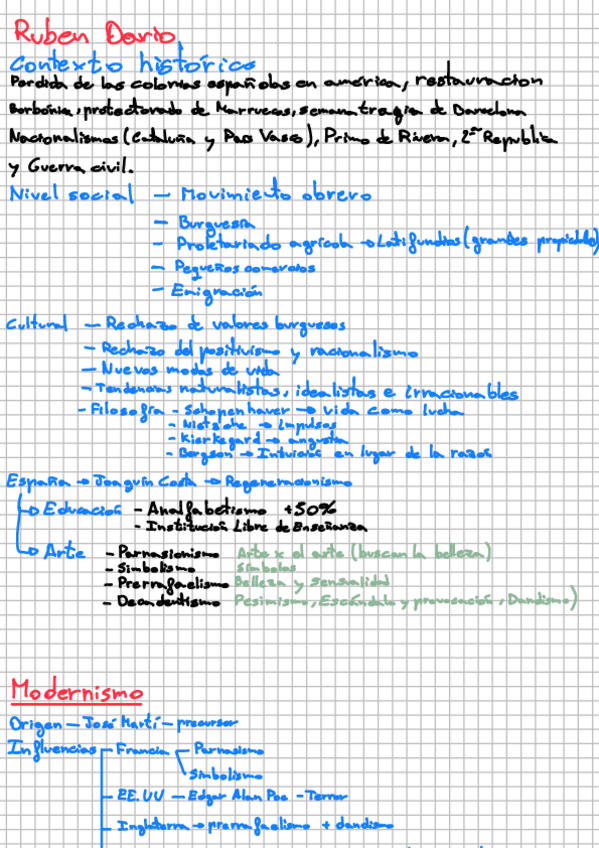 Ruben Dario
Contexto histórico
Perdida de las colonias españolas en américa, restauracion
Borbónica, protectorado de Marruecos, semana tragica de Barcelona
Nacionalismos (Cataluña y Pais Vasco), Primo de Rivera, 2ª Republica
y Guerra civil.
Nivel social – Movimiento obrero
– Burguesía
– Proletariado agrícola → Latifundios (grandes propiedades)
– Pequeños comercios
– Emigración
Cultural – Rechazo de valores burgueses
– Rechazo del positivismo y racionalismo
– Nuevos modos de vida
– Tendencias naturalistas, idealistas e irracionables
– Filosofía – Schopenhaver → vida como lucha
– Nietzche → impulsos
– Kierkegard → angustia
– Bergson → Intuición en lugar de la razón
España → Joaquín Costa → Regeneracionismo
→ Educación – Analfabetismo +50%
– Institución Libre de Enseñanza
→ Arte – Parnasionismo Arte x el arte (buscan la belleza)
– Simbolismo Símbolos
– Prerrafaelismo Belleza y sensualidad
– Decandentismo Pesimismo, Escándalo y provocación, Dandismo)
Modernismo
Origen – José Martí – precursor
Influencias – Francia – Parnasismo
Simbolismo
– EE.UU – Edgar Alan Poe – Terror
– Inglaterra → prerrafaelismo + dandismo